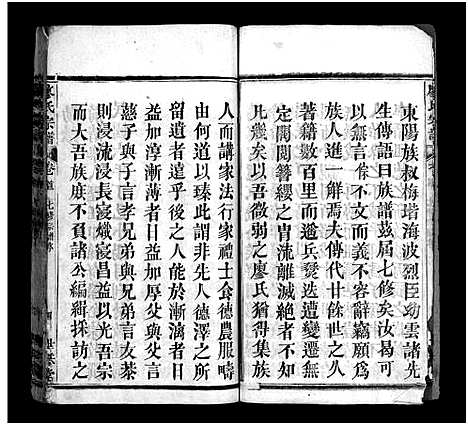 東陽族叔梅塔海波烈臣幼雲諸先
生傳語曰族譜茲屆七修矣汝曷可
以無言食不文而有不容辭竊願為
族人進一解焉夫傳代廿餘世之人
著籍數百里而遙兵燹迭遭變遷無
定閥閱簪纓之胄流離滅絕者不知
凡幾矣以吾微弱之廖氏猶得集族
人而講家法行家禮士食德農服疇
由何以臻此謂非先人德澤之所
留遺者遠乎後之人能於漸漓者日
益加淳漸薄者日益加厚父與父言
慈子與子言孝兄弟與兄弟言友恭
則浸流浸長寖熾寖昌益以光吾宗
而大吾族庶不負諸公編緝採訪之
廖氏宗譜
卷首
世綵堂